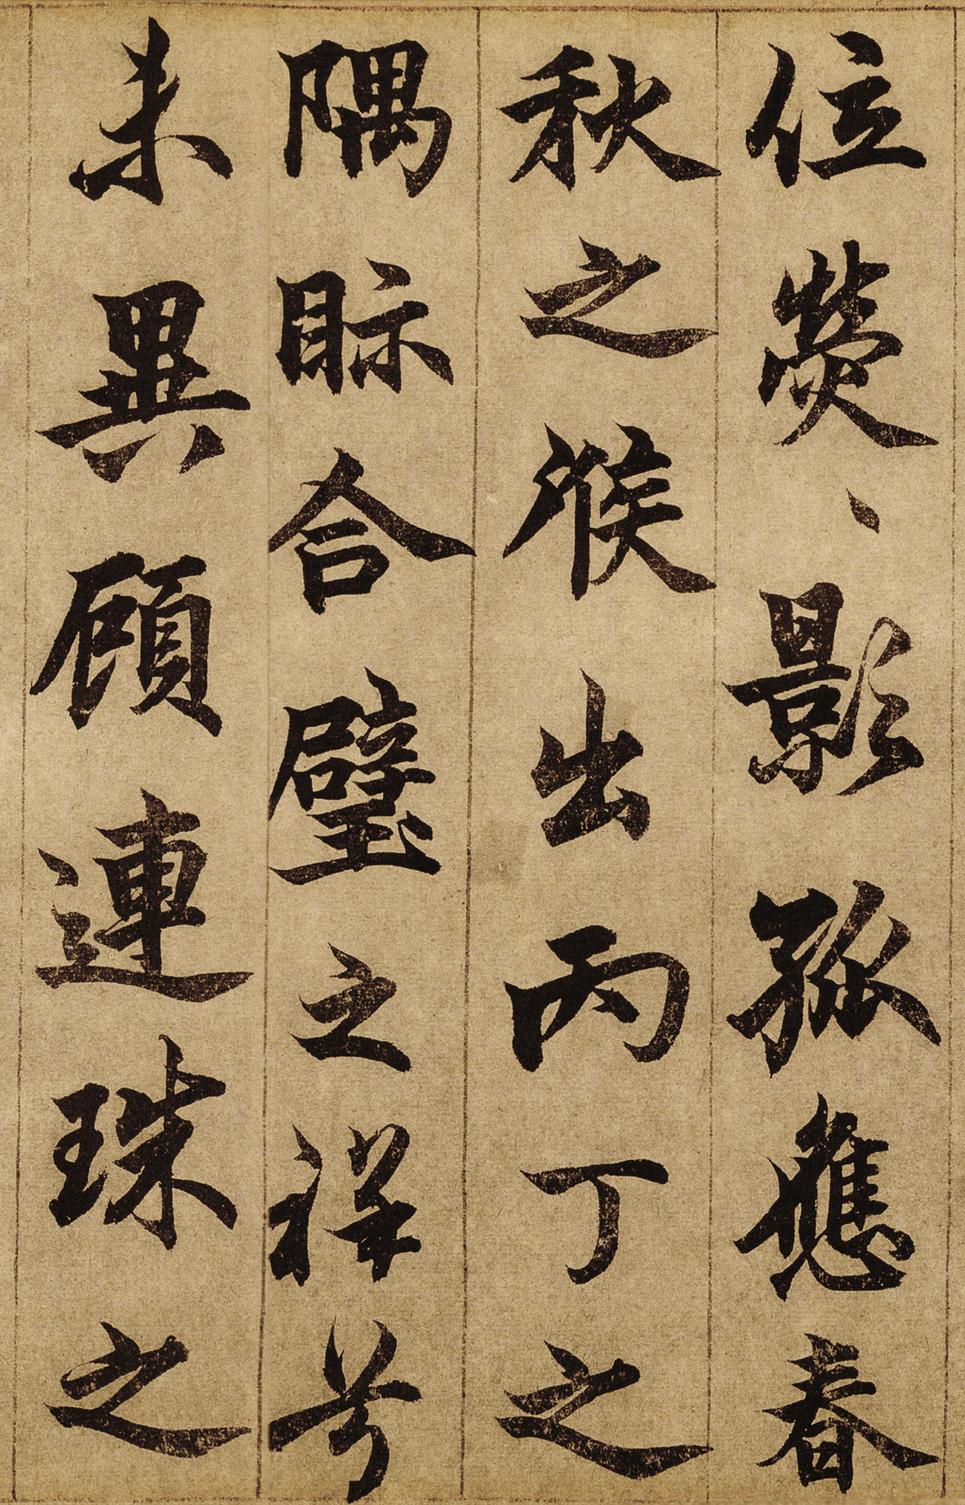 位熒、影孤應春
秋之候出丙丁之
隅眎合璧之祥兮
未異顧連珠之